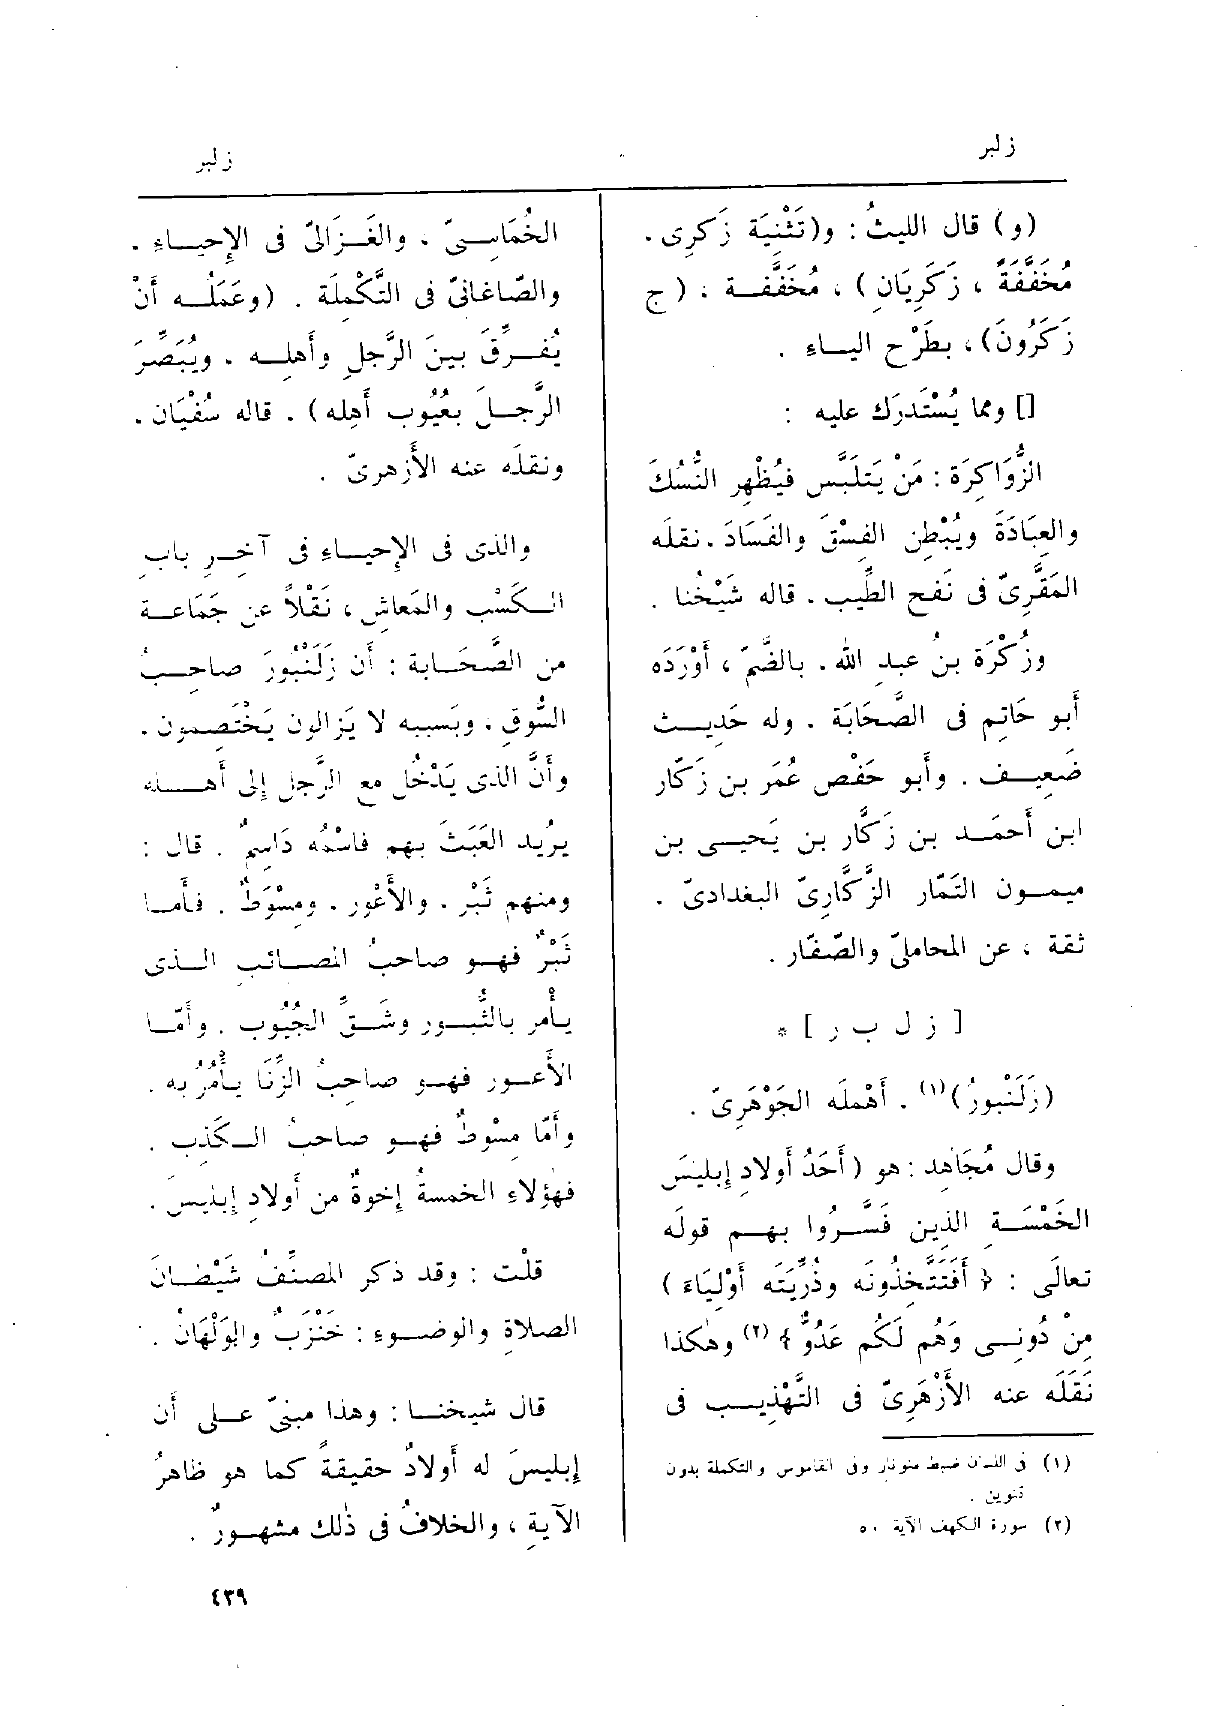 زلبر
زلبر
(و) قال الليثُ : و(تَثْنِيَة زَكَرِى،
مُخَفَّفَةً ، زَكَرِيَانِ) ، مُخَفَّفــة ، (ج
زَكَرُونَ)، بطَرْح اليــاء .
[] ومما يُسْتَدرَك عليه :
الزُّوَاكِرَة : مَنْ يَتلَبَّس فيُظْهِر النُّسُكَ
والعِبَادَةَ ويُبْطِن الفِسْقَ والفَسَادَ. نقلَه
المَقَّرِىّ فى نَفح الطِّيب. قاله شَيْخُنا .
وزُكْرَة بنُ عبدِ الله. بالضَّمّ ، أَوْرَدَه
أَبو حَاتِم فى الصَّحَابَة . وله حَدِيــث
ضَعِيــف . وأَبو حَفْص عُمَر بن زَكَّار
ابن أَحمَــد بن زَكَّار بن يَحيــى بن
ميمــون التَّمّار الزَّكَّارِىّ البغدادىّ .
ثقة ، عن المحاملىّ والصّفّار .
[ ز ل ب ر ] *
(زَلَنْبورُ)(١) . أَهْملَه الجَوْهَرِىّ .
وقال مُجَاهِد : هو (أَحَدُ أَولادِ إِبليسَ
الخَمْسَــةِ الذِين فَسَّرُوا بهــم قولَه
تعالَى : ﴿ أَفَتَتَّخِذُونَه وذُرِّيَّتَه أَوْلِيَاءَ )
مِنْ دُونِــى وَهُم لَكُم عَدُوٌّ ﴾(٢) وهٰكذا
نَقَلَه عنه الأَزْهَرِىّ فى التَّهْذِيــب فى
(١) فى اللسان ضبط منونار وفى القاموس والتكملة بدون
تنوين .
(٢) سورة الكهف الآية ٥٠
الخُمَاسِــىّ . والغَــزَالىّ فى الإِحيــاءِ .
والصّاغانىّ فى التَّكْمِلَة . (وعَمَلُــه أَنْ
يُفــرِّقَ بينَ الرَّجلِ وأَهلِــه . ويُبَصِّرَ
الرَّجــلَ بعُيُوب أَهلِه) . قاله سُفْيَان .
ونقلَه عنه الأَزهرىّ .
والذى فى الإِحيــاء فى آخــرِ بابِ
الــكَسْب والمَعاش ، نَقْلاً عن جَمَاعــة
من الصَّحَــابة : أَن زَلَنْبُورَ صاحــبُ
السُّوقِ . وبَسببه لا يَزالون يَخْتَصِمون.
وأَنَّ الذى يَدْخُل مع الرَّجل إِلى أَهــله
يرُيد العَبَثَ بهم فاسْمُه دَاسِمٌ . قال :
ومنهم ثَبْر . والأَعْور . ومِسْوَطٌ . فأَمــا
ثَبْرٌ فهــو صاحبُ المصــائب الــذى
يــأْمر بالثُّبــور وشَــقِّ الجُيُوب . وأَمّــا
الأَعــور فهــو صاحبُ الزِّنَا يــأْمُرُ به .
وأَمّا مِسْوطٌ فهــو صاحبُ الــكَذِب .
فهؤلاءِ الخمسةُ إِخوةٌ من أَولادِ إِبليسَ .
قلْت : وقد ذكر المصنِّفُ شَيْطــانَ
الصلاة والوضــوءِ : خَنْزَبٌ والوَلْهَانُ .
قال شيخنــا : وهذا مبنىّ عــلى أَن
إِبليسَ له أَولادٌ حقيقةً كما هو ظاهرُ
الآيةِ ، والخلافُ فى ذٰلك مشهــورٌ .
٤٣٩